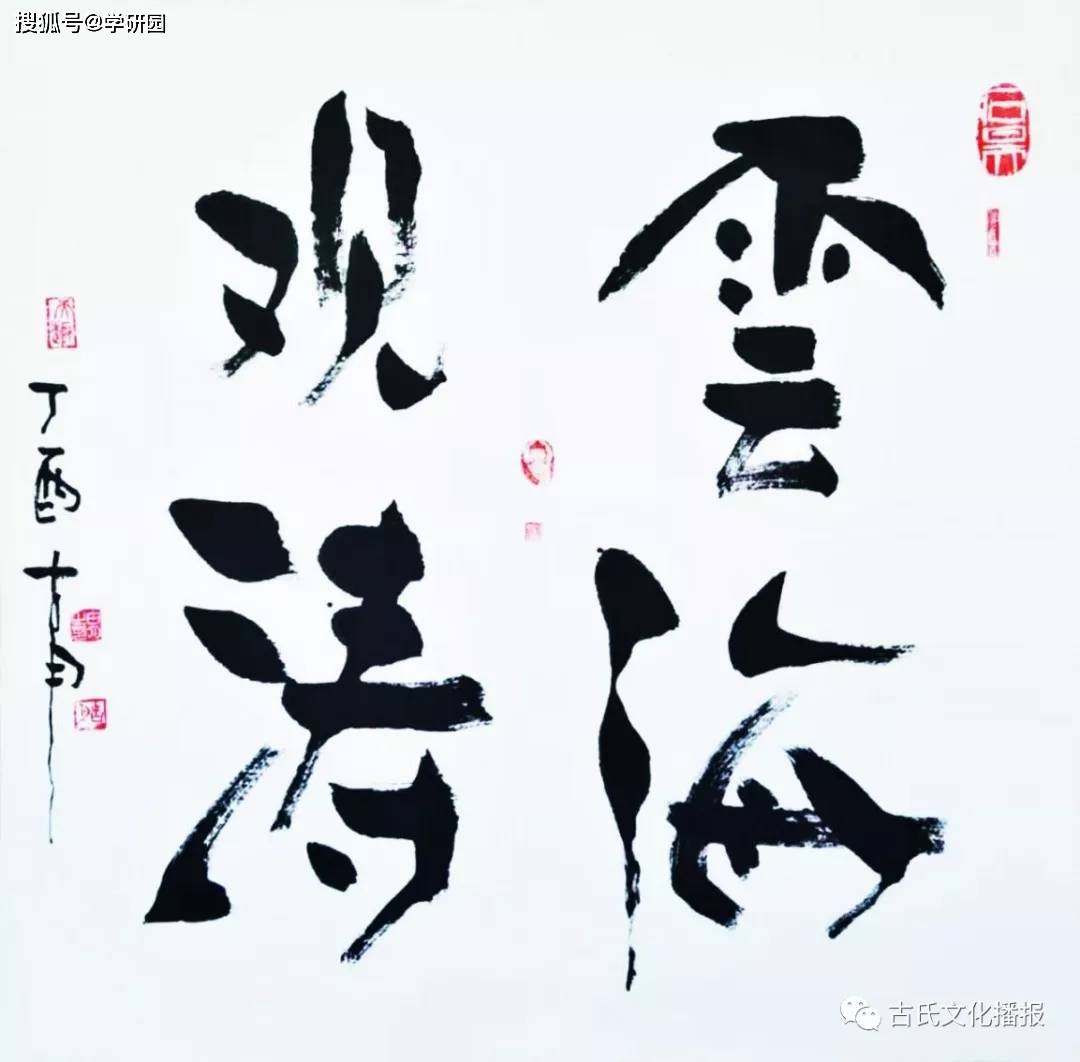 搜狐号@学研园
雲海
观涛
丁酉
古氏文化播报